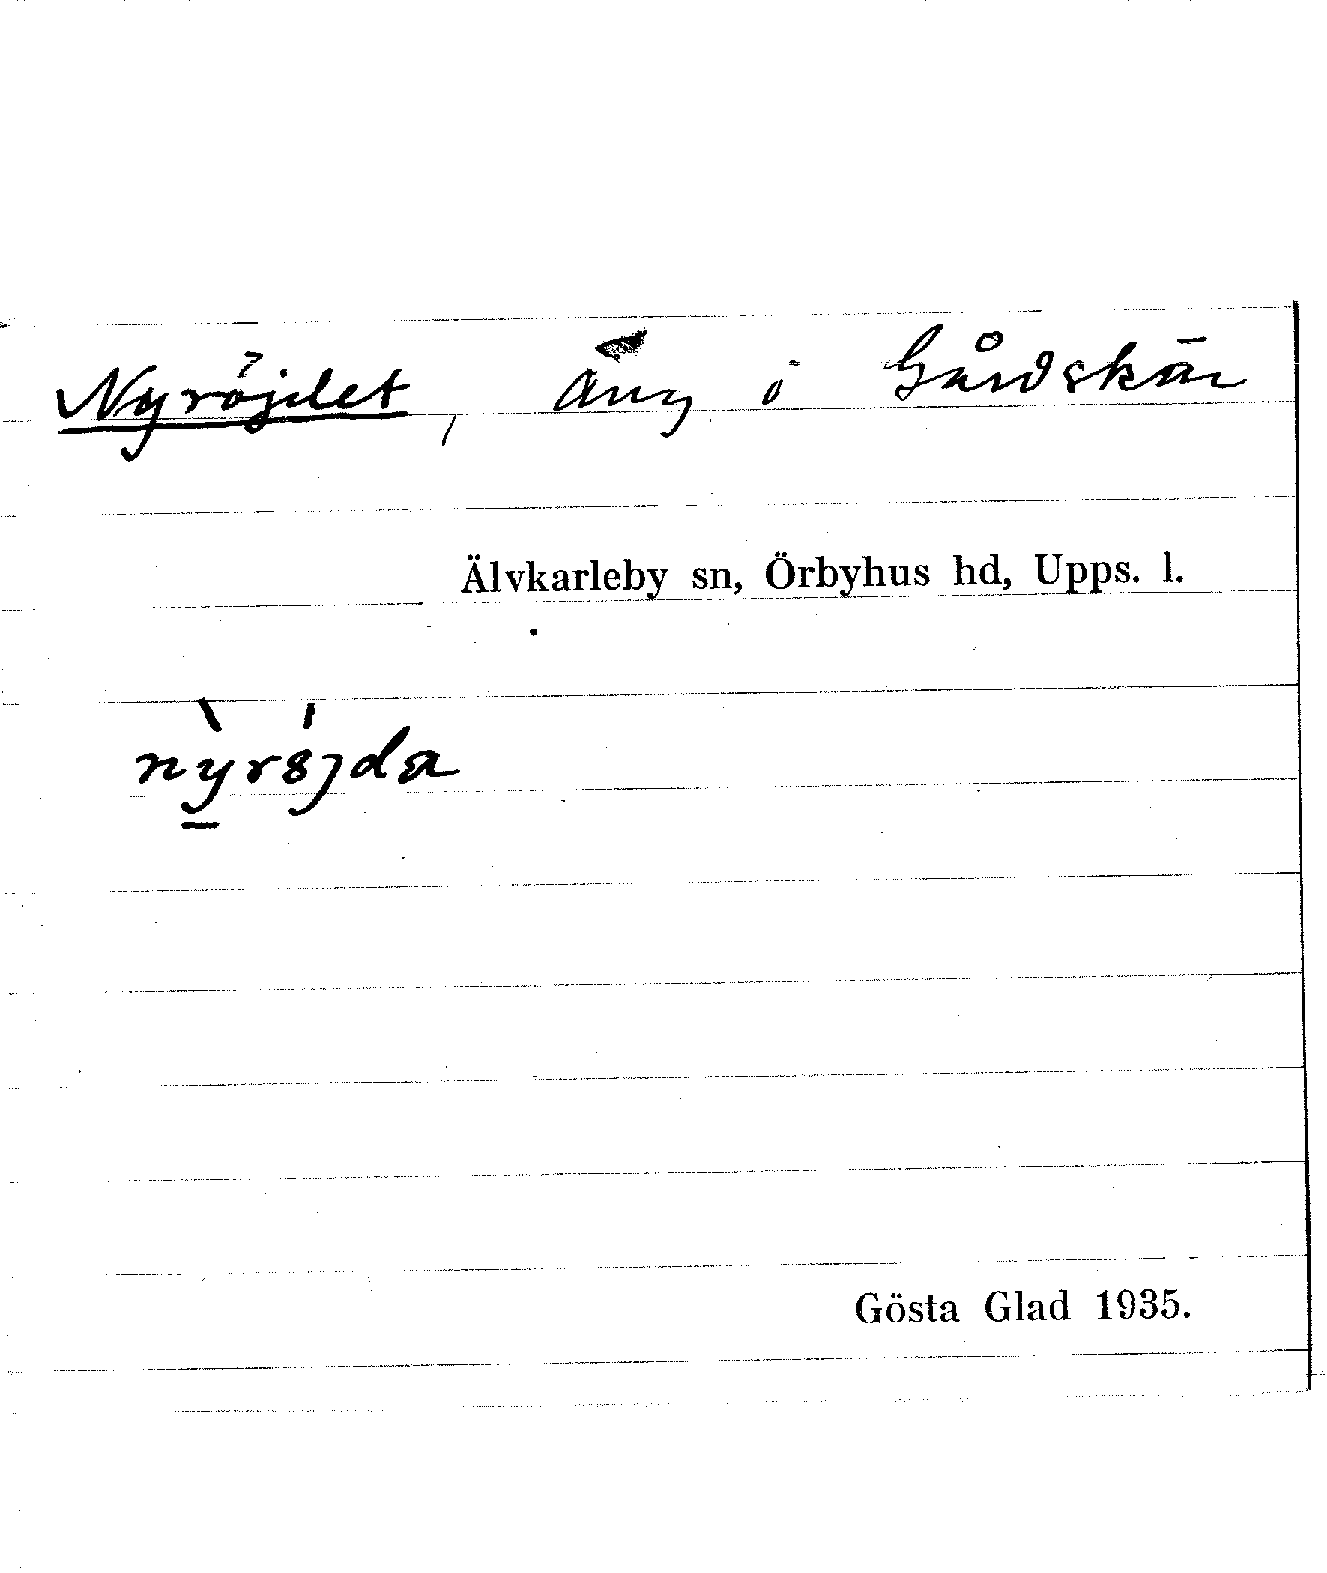 Nyröjdet, äng i Gårdskär
Älvkarleby sn, Örbyhus hd, Upps. l.
nỳrö́jda
Gösta Glad 1935.